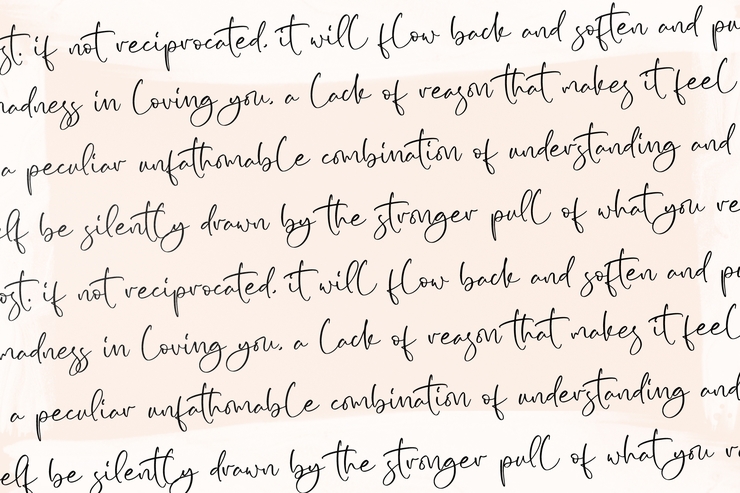 st. if not reciprocated. it will flow back and soften and pu
madness in loving you. a lack of reason that makes it feel
a peculiar unfathomable combination of understanding and
elf be silently drawn by the stronger pull of what you re
ost. if not reciprocated. it will flow back and soften and pu
madness in loving you. a lack of reason that makes it feel
a peculiar unfathomable combination of understanding and
elf be silently drawn by the stronger pull of what you r